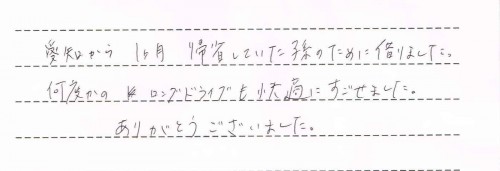 愛知から 1ヶ月 帰省していた孫のために借りました。
何度かの ロングドライブも快適にすごせました。
ありがとうございました。